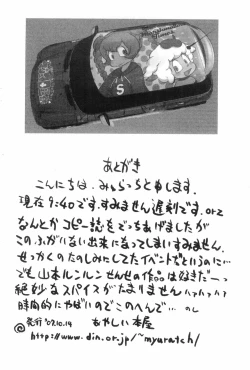 S
あとがき
こんにちは、みゅらっちと申します。
現在9:40です。すみません遅刻です。orz
なんとかコピー誌をでっちあげましたが
このふがいない出来になってしまいすみません。
せっかくのたのしみにしてたイベントだというのに…
でも山本ルンルンせんせの作品は好きだーっ
絶妙なスパイスがたまりません ハァハァハァ
時間的にやばいのでこのへんで… のし
◎発行 '07.10.14 もやしい本屋
http://www.din.or.jp/~myuratch/